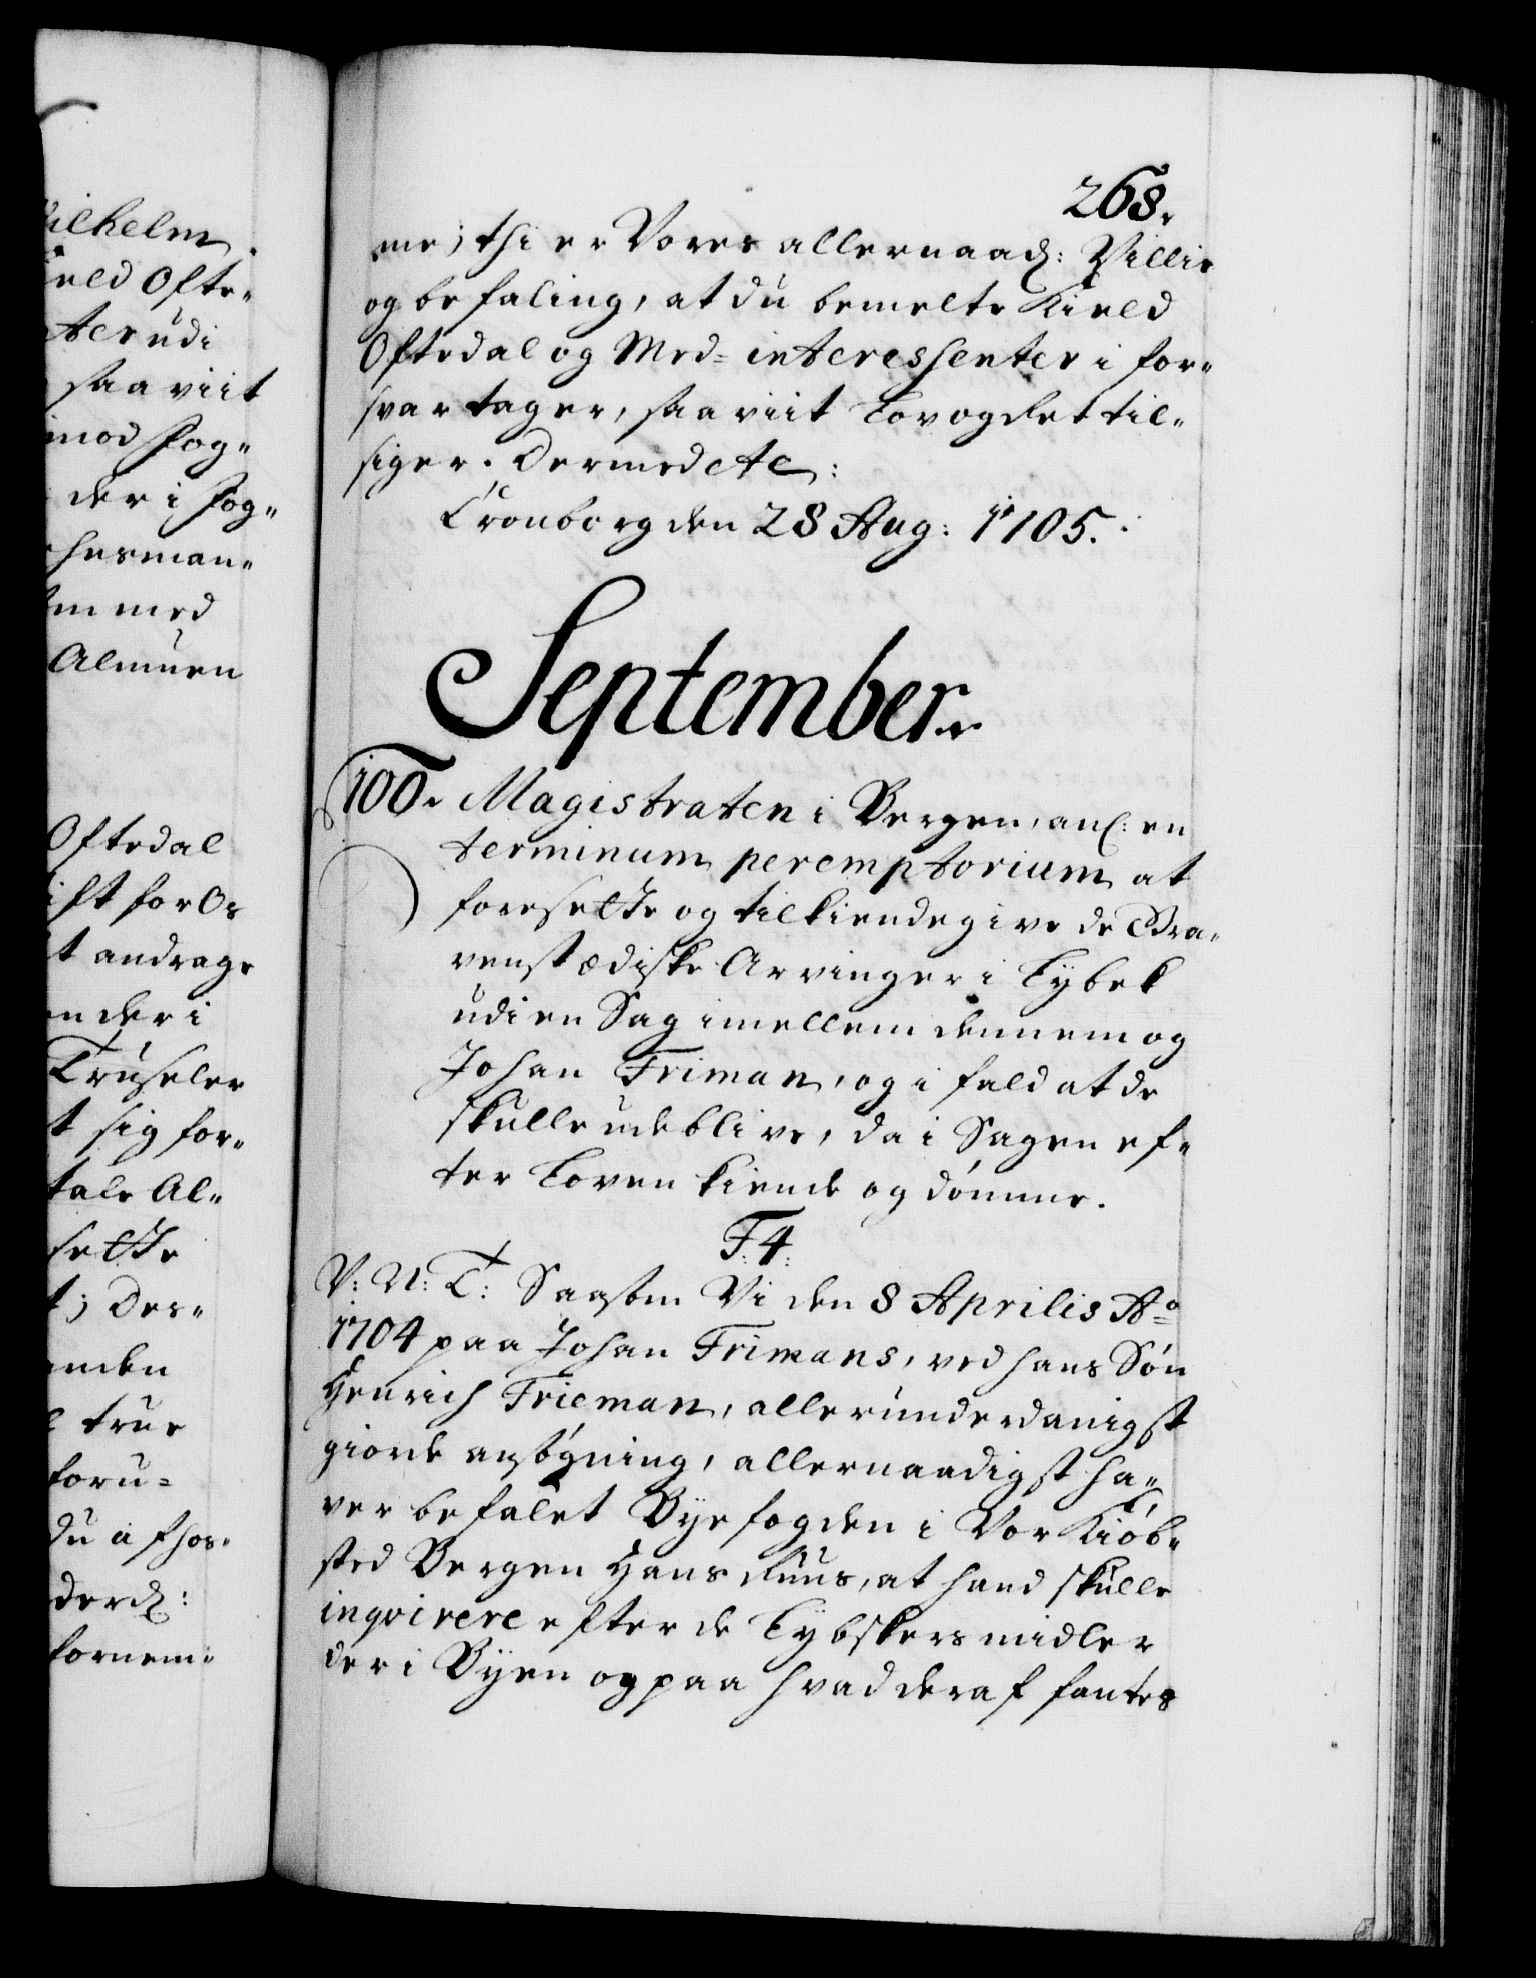 ilhelm
ield Ofte-
ter udi
saa viit
imod Fog-
der i Fog-
hesman-
em med
Almuen
Oftedal
ist for Os
t andrage
en der i
Truseler
t sig for-
tale Al-
sette
t; Des-
nden
true
foru-
du afhør-
der:
fornem-
268.
me; thi er Vores allernaad: Villie
og befaling, at du bemelte Kield
Oftedal og Med-interessenter i for-
svar tager, saaviit Lov og Ret til-
siger. Dermed etc:
Cronborg den 28 Aug: 1705.
September.
100. Magistraten i Bergen, anl: en
terminum peremptorium at
foresette og tilkiendegive de Bra-
venstædiske Arvinger i Lybek
udi en Sag imellem dennem og
Johan Friman, og i fald at de
skulle udeblive, da i Sagen ef-
ter Loven kiende og dømme.
F. 4.
V: N: T: Saasom Vi den 8 Aprilis Ao
1704 paa Johan Frimans, ved hans Søn
Henrich Frieman, allerunderdanigst
giorde ansøgning, allernaadigst ha-
ver befalet Byefogden i Vor Kiøb-
sted Bergen Hans Ruus, at hand skulle
inqvirere efter de Lybskers midler
der i Byen og paa hvad deraf fantes